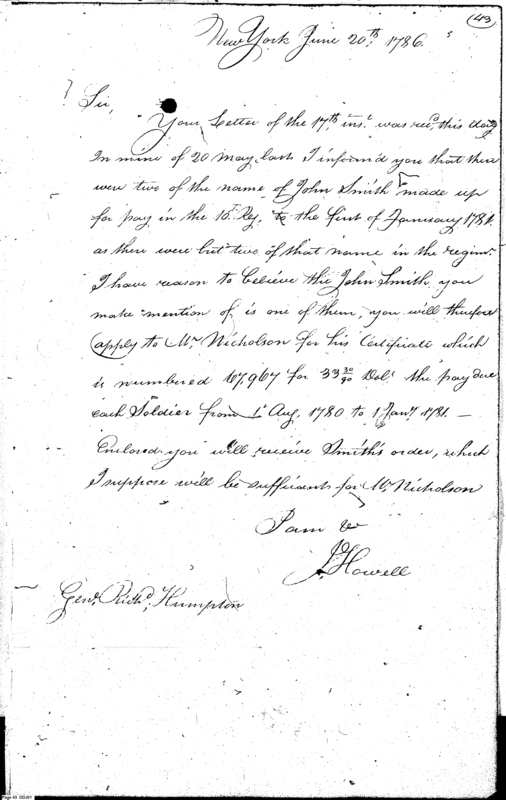 43
New York June 20th. 1786.
Sir,
Your Letter of the 17th. inst. was recd. this day
In mine of 20 May last I inform'd you that there
were two of the name of John Smith made up
for pay in the 10t. Reg. to the first of January 1781.
as there were but two of that name in the regimt.
I have reason to believe the John Smith you
make mention of, is one of them, you will therefore
apply to Mr. Nicholson for his Certificate which
is numbered 67,967 for 33 30/90 Dols. the pay due
each Soldier from 1t Aug. 1780 to 1 Jany. 1781. —
Enclosed you will receive Smith's order, which
I suppose will be sufficient for Mr. Nicholson
I am &
Jo Howell
Genl. Richd. Humpton
Page 43